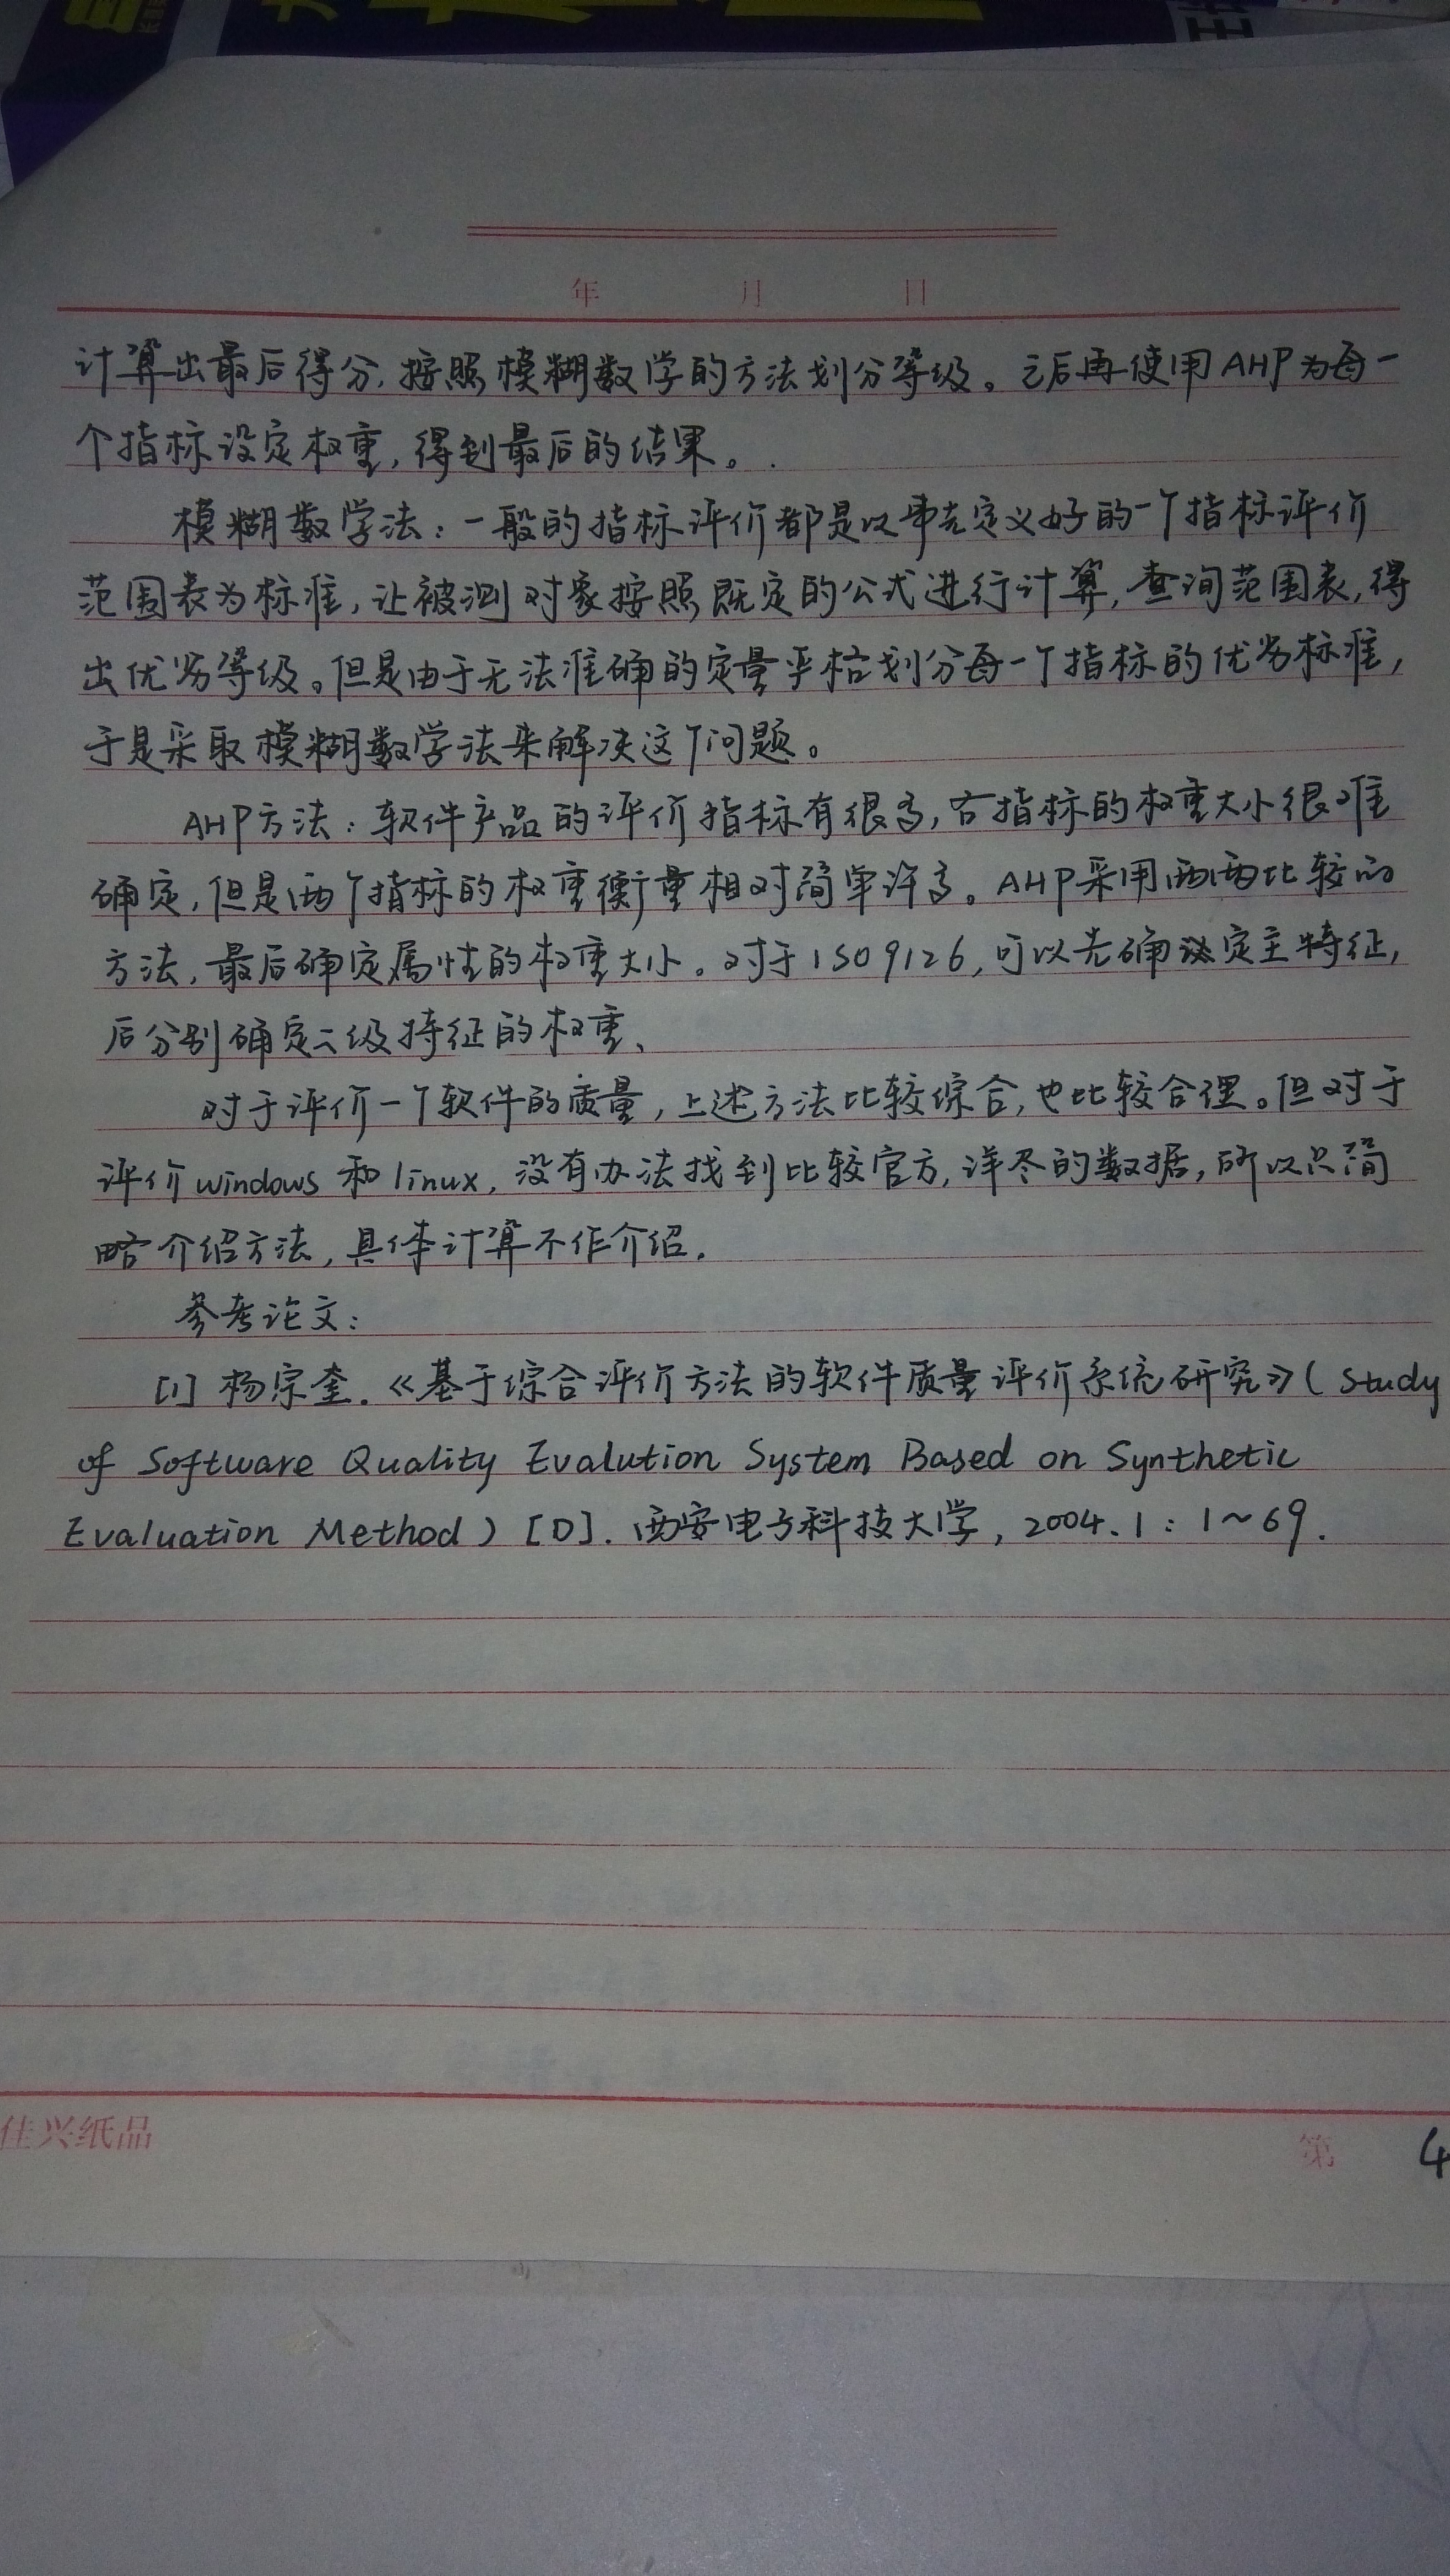 年 月 日
计算出最后得分,按照模糊数学的方法划分等级。之后再使用AHP为每一
个指标设定权重,得到最后的结果。
模糊数学法:一般的指标评价都是以事先定义好的一个指标评价
范围表为标准,让被测对象按照既定的公式进行计算,查询范围表,得
出优劣等级。但是由于无法准确的定量严格划分每一个指标的优劣标准,
于是采取模糊数学法来解决这个问题。
AHP方法:软件产品的评价指标有很多,各指标的权重大小很难
确定,但是两个指标的权重衡量相对简单许多。AHP采用两两比较的
方法,最后确定属性的权重大小。对于ISO9126,可以先确定主特征,
后分别确定二级特征的权重、
对于评价一个软件的质量,上述方法比较综合,也比较合理。但对于
评价windows和linux,没有办法找到比较官方,详尽的数据,所以只简
略介绍方法,具体计算不作介绍.
参考论文:
[1] 杨宗奎.《基于综合评价方法的软件质量评价系统研究》(Study
of Software Quality Evalution System Based on Synthetic
Evaluation Method)[D].西安电子科技大学,2004.1:1~69.
佳兴纸品
第 4